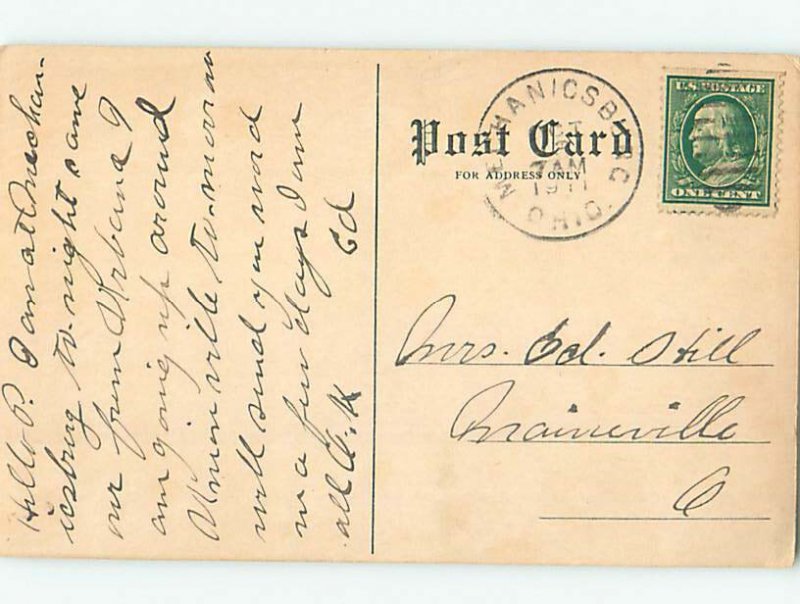 Hello P. I am at Mechan-
icsburg to-night came
our from Urbana I
am going up around
Union ville to-morrow
will send you word
in a few days I am
all O.K
Ed
Post Card
FOR ADDRESS ONLY
MECHANICSBURG
7 AM
1911
OHIO.
U.S. POSTAGE
ONE CENT
Mrs. Ed. Still
Maineville
O